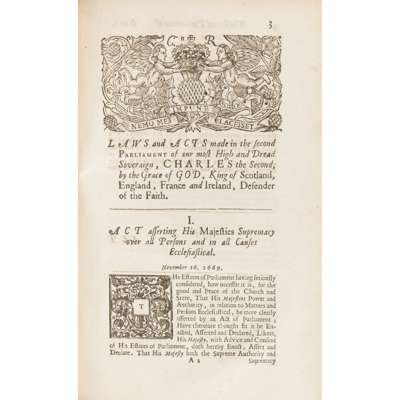 3
C R
NEMO ME IMPUNE LACESSET
LAWS and ACTS made in the second
PARLIAMENT of our most High and Dread
Soveraign, CHARLES the Second,
by the Grace of GOD, King of Scotland,
England, France and Ireland, Defender
of the Faith.
I.
ACT asserting His Majesties Supremacy
over all Persons and in all Causes
Ecclesiastical.
November 16. 1669.
THe Estates of Parliament having seriously
considered, how necessar it is, for
the good and Peace of the Church and
State, That His Majesties Power and
Authority, in relation to Matters and
Persons Ecclesiastical, be more clearly
asserted by an Act of Parliament,
Have therefore thought fit it be En-
acted, Asserted and Declared, Likeas,
His Majestie, with Advice and Consent
of His Estates of Parliament, doth hereby Enact, Assert and
Declare, That His Majesty hath the Supreme Authority and
A 2 Supremacy